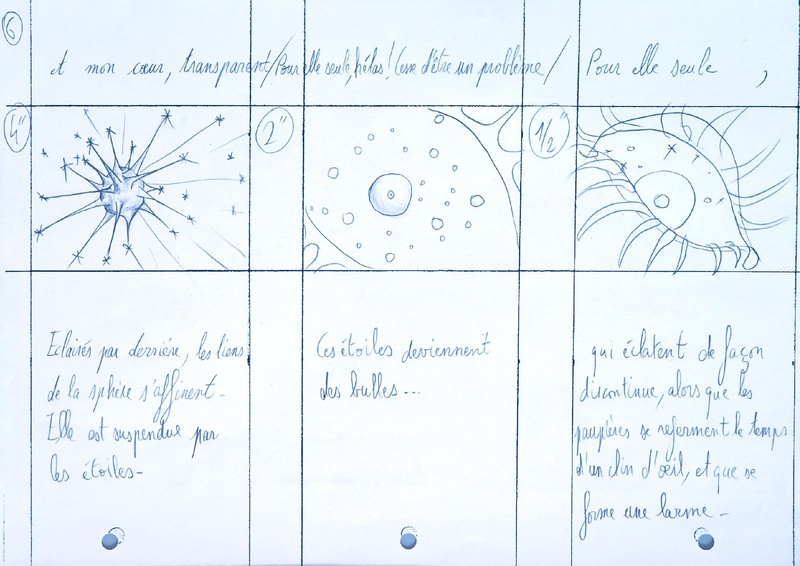 6
et mon cœur, transparent / Pour elle seule, hélas ! Cesse d'être un problème / Pour elle seule ,
4"
2"
1/2"
Eclairés par derrière, les liens
de la sphère s'affinent -
Elle est suspendue par
les étoiles -
Ces étoiles deviennent
des bulles ...
qui éclatent de façon
discontinue, alors que les
paupières se referment le temps
d'un clin d'œil, et que se
forme une larme -